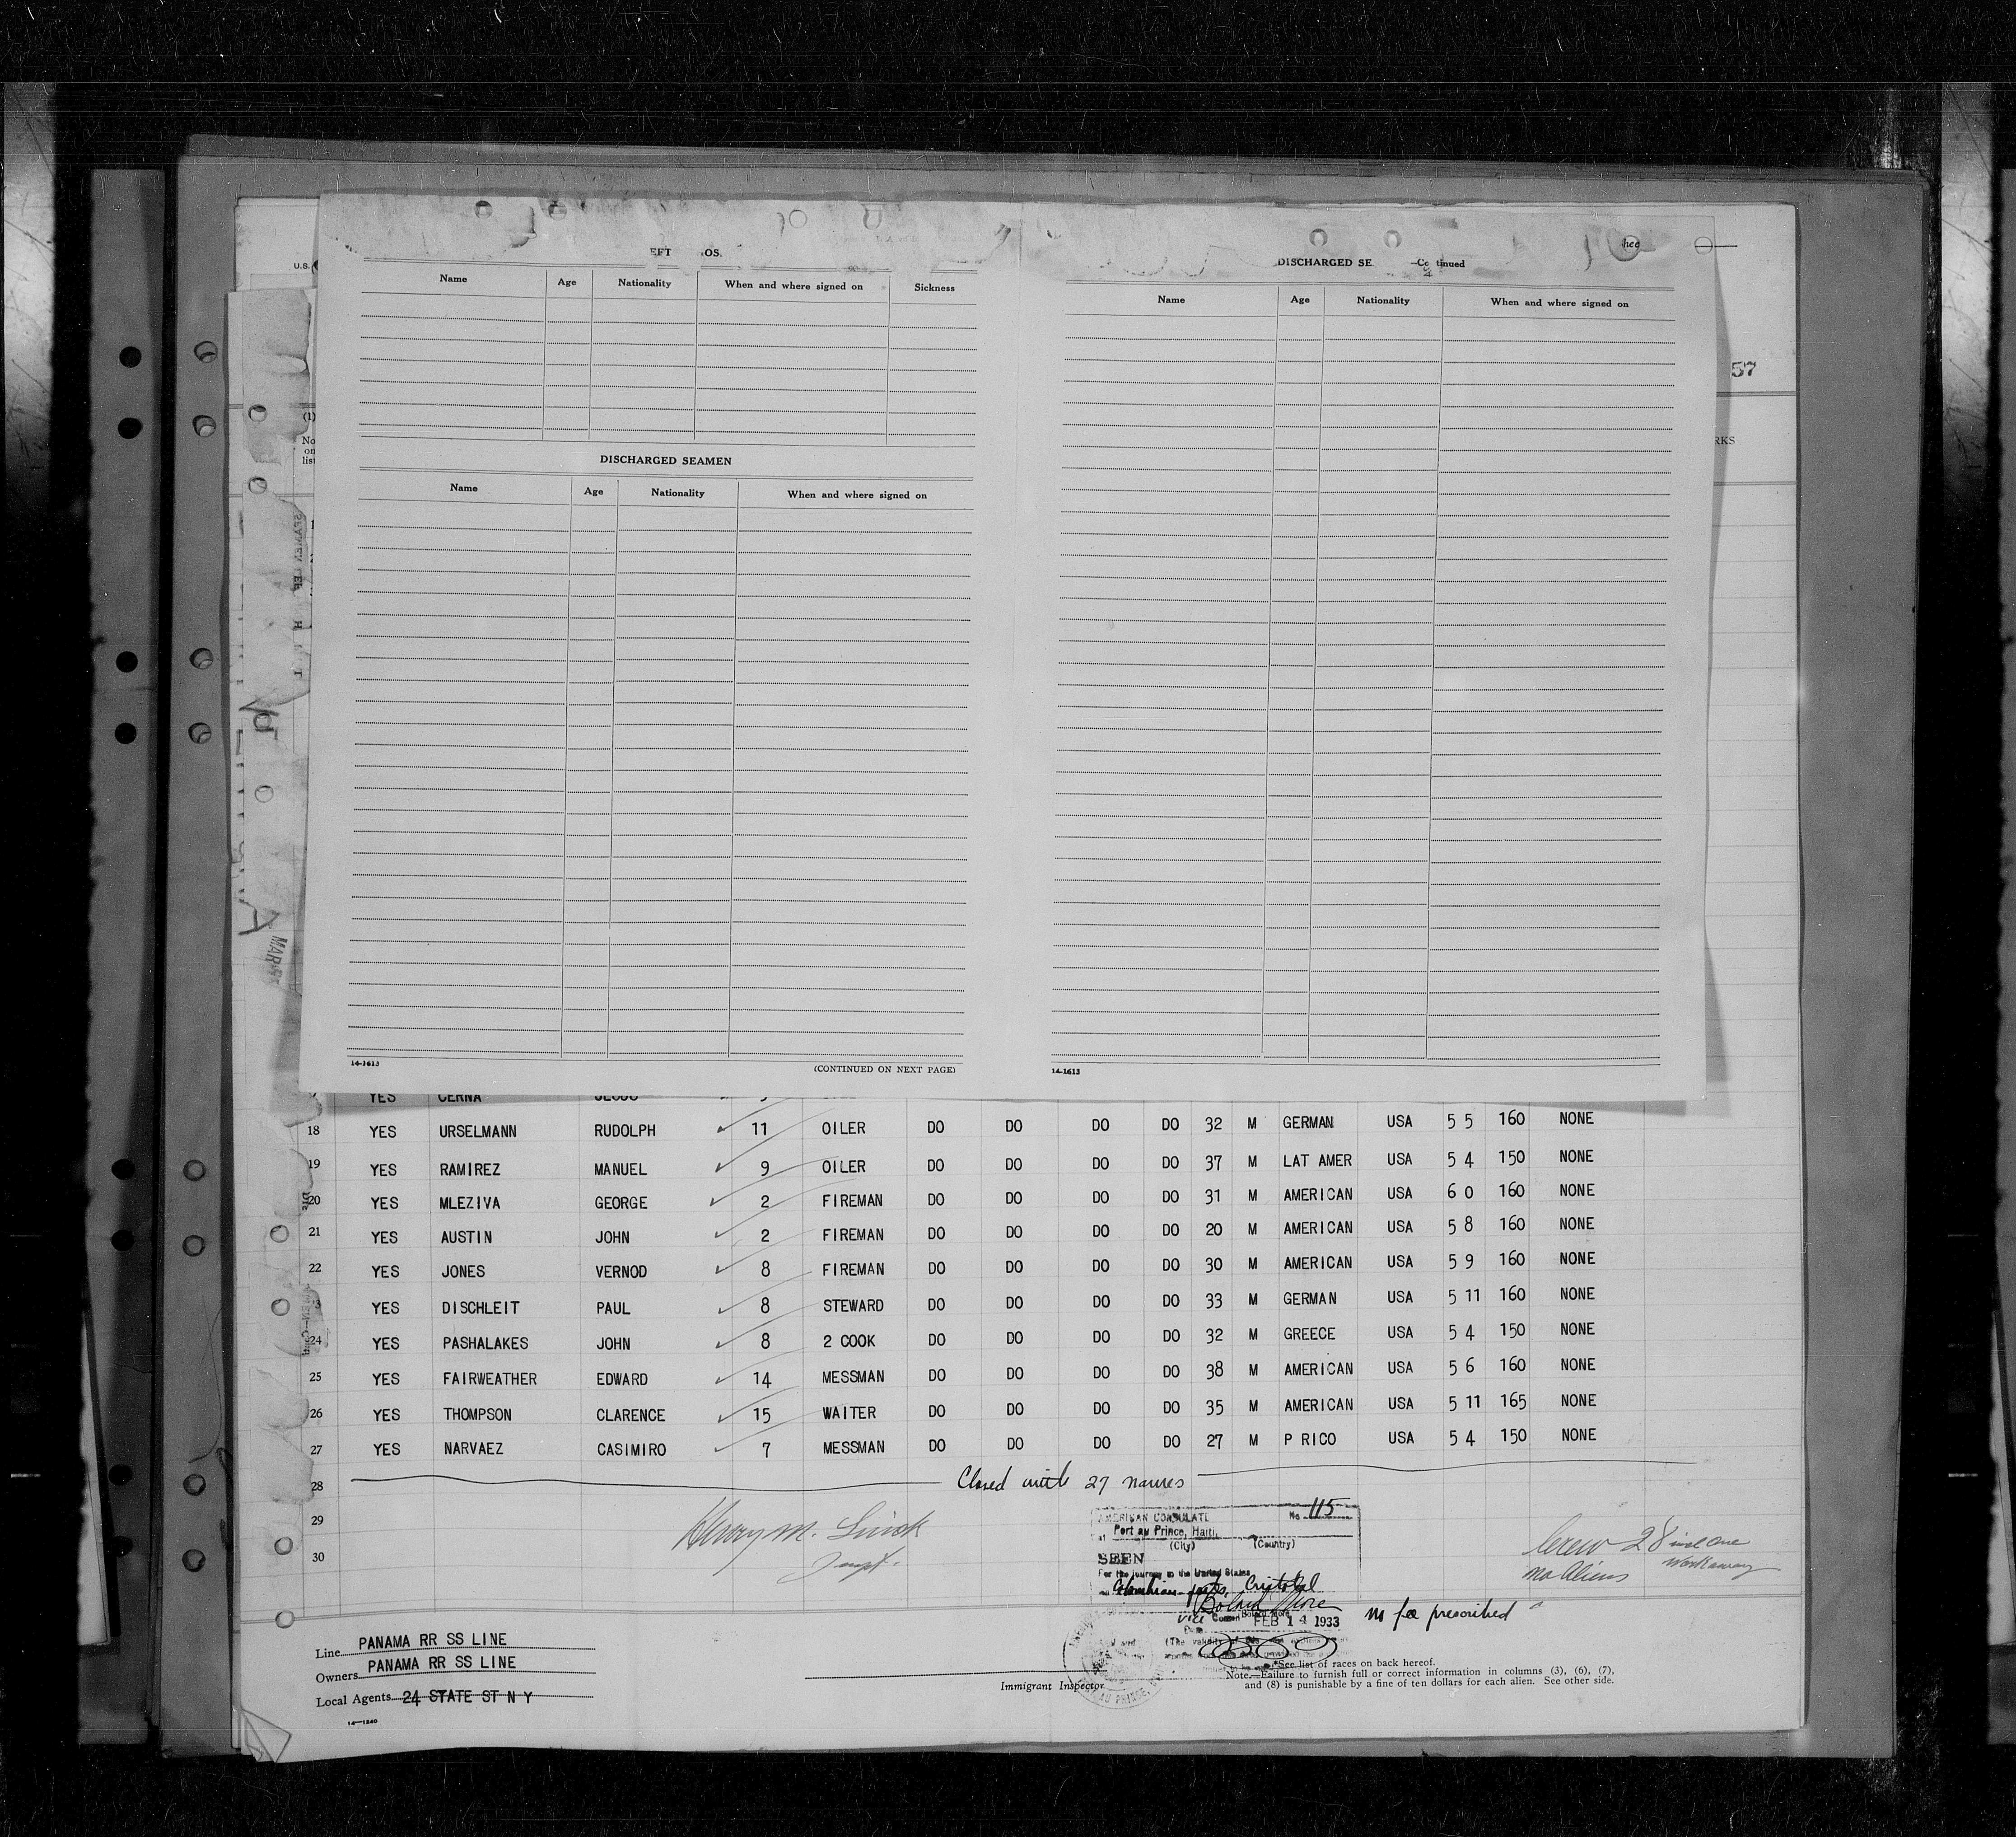 U.S.
EFT OS.
Name Age Nationality When and where signed on Sickness
DISCHARGED SEAMEN
Name Age Nationality When and where signed on
14-1613
(CONTINUED ON NEXT PAGE)
hee
DISCHARGED SE —Co tinued
Name Age Nationality When and where signed on
14-1613
57
RKS
(1)
No
on
list
MAR
YES CERNA
18 YES URSELMANN RUDOLPH 11 OILER DO DO DO DO 32 M GERMAN USA 5 5 160 NONE
19 YES RAMIREZ MANUEL 9 OILER DO DO DO DO 37 M LAT AMER USA 5 4 150 NONE
20 YES MLEZIVA GEORGE 2 FIREMAN DO DO DO DO 31 M AMERICAN USA 6 0 160 NONE
21 YES AUSTIN JOHN 2 FIREMAN DO DO DO DO 20 M AMERICAN USA 5 8 160 NONE
22 YES JONES VERNOD 8 FIREMAN DO DO DO DO 30 M AMERICAN USA 5 9 160 NONE
3 YES DISCHLEIT PAUL 8 STEWARD DO DO DO DO 33 M GERMAN USA 5 11 160 NONE
24 YES PASHALAKES JOHN 8 2 COOK DO DO DO DO 32 M GREECE USA 5 4 150 NONE
25 YES FAIRWEATHER EDWARD 14 MESSMAN DO DO DO DO 38 M AMERICAN USA 5 6 160 NONE
26 YES THOMPSON CLARENCE 15 WAITER DO DO DO DO 35 M AMERICAN USA 5 11 165 NONE
27 YES NARVAEZ CASIMIRO 7 MESSMAN DO DO DO DO 27 M P RICO USA 5 4 150 NONE
28 Closed with 27 names
29
30
AMERICAN CONSULATE No 115
at Port au Prince, Haiti
(City) (Country)
SEEN
For the journey to the United States
Colombian ports, Cristobal
Vice Consul
FEB 14 1933
no fee prescribed
(The validity of
Crew 28 incl one
Workaway
no Aliens
Line PANAMA RR SS LINE
Owners PANAMA RR SS LINE
Local Agents 24 STATE ST N Y
14—1240
Immigrant Inspector
*See list of races on back hereof.
Note.—Failure to furnish full or correct information in columns (3), (6), (7),
and (8) is punishable by a fine of ten dollars for each alien. See other side.